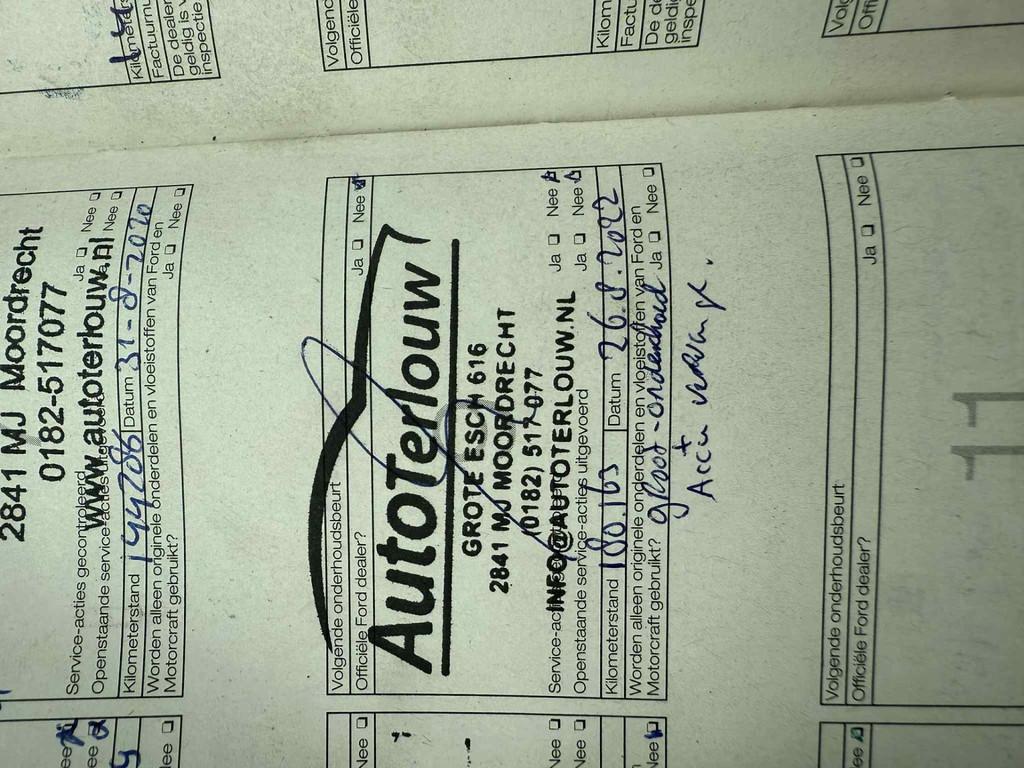 Kilometerst
Factuurnum
De dealer
geldig is v
inspectie
Volgend
Officiële
Kilom
Factu
De de
geldig
inspe
Volg
Offi
2841 MJ Moordrecht
0182-517077
www.autoterlouw.nl
Service-acties gecontroleerd Ja Nee
Openstaande service-acties uitgevoerd Nee
Kilometerstand 144286 Datum 31-8-2020
Worden alleen originele onderdelen en vloeistoffen van Ford en
Motorcraft gebruikt? Ja Nee
Volgende onderhoudsbeurt
Officiële Ford dealer? Ja Nee
AutoTerlouw
GROTE ESCH 616
2841 MJ MOORDRECHT
(0182) 517 077
INFO@AUTOTERLOUW.NL
Service-act Ja Nee
Openstaande service-acties uitgevoerd Ja Nee
Kilometerstand 180.163 Datum 26.8.2022
Worden alleen originele onderdelen en vloeistoffen van Ford en
Motorcraft gebruikt? groot-onderhoud Ja Nee
Accu
Volgende onderhoudsbeurt
Officiële Ford dealer? Ja Nee
11
Nee
Nee
Nee
Nee